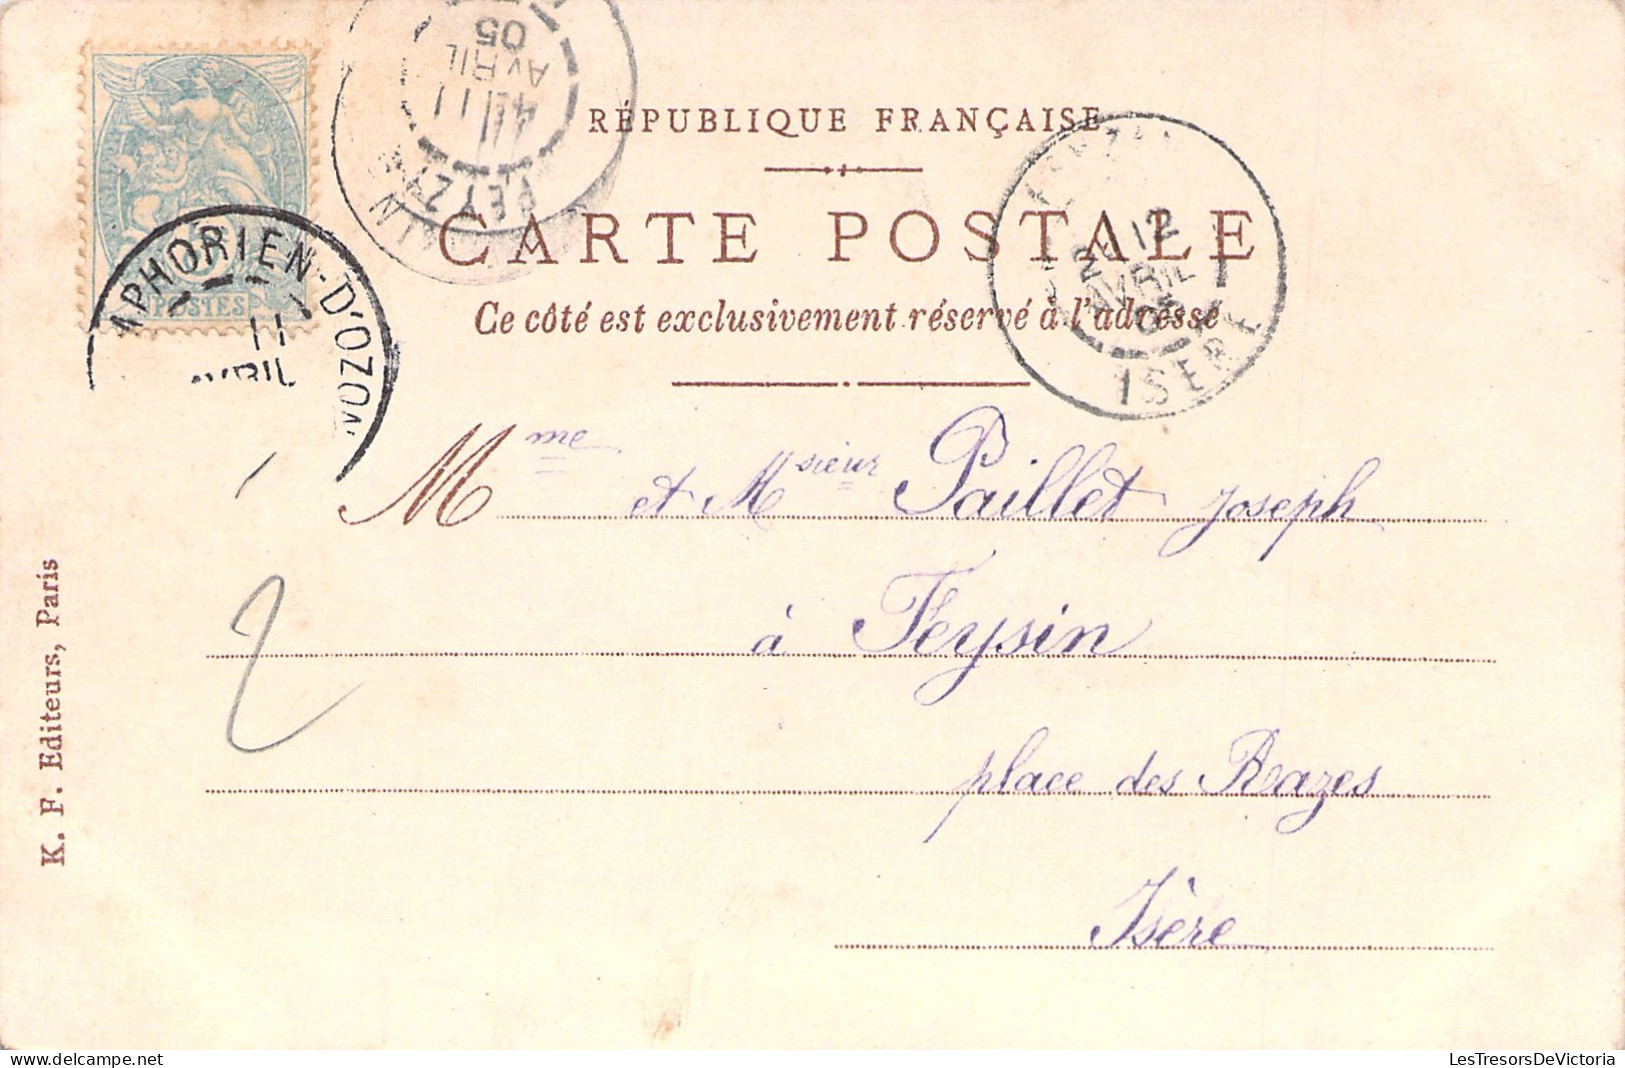 RÉPUBLIQUE FRANÇAISE
CARTE POSTALE
Ce côté est exclusivement réservé à l'adresse
POSTES
APHORIEN-D'OZON
11
AVRIL
05
4E 11
12
AVRIL
ISERE
Mme et Msieur Paillet Joseph
à Feysin
place des Razes
Isère
2
K. F. Editeurs, Paris
LesTresorsDeVictoria